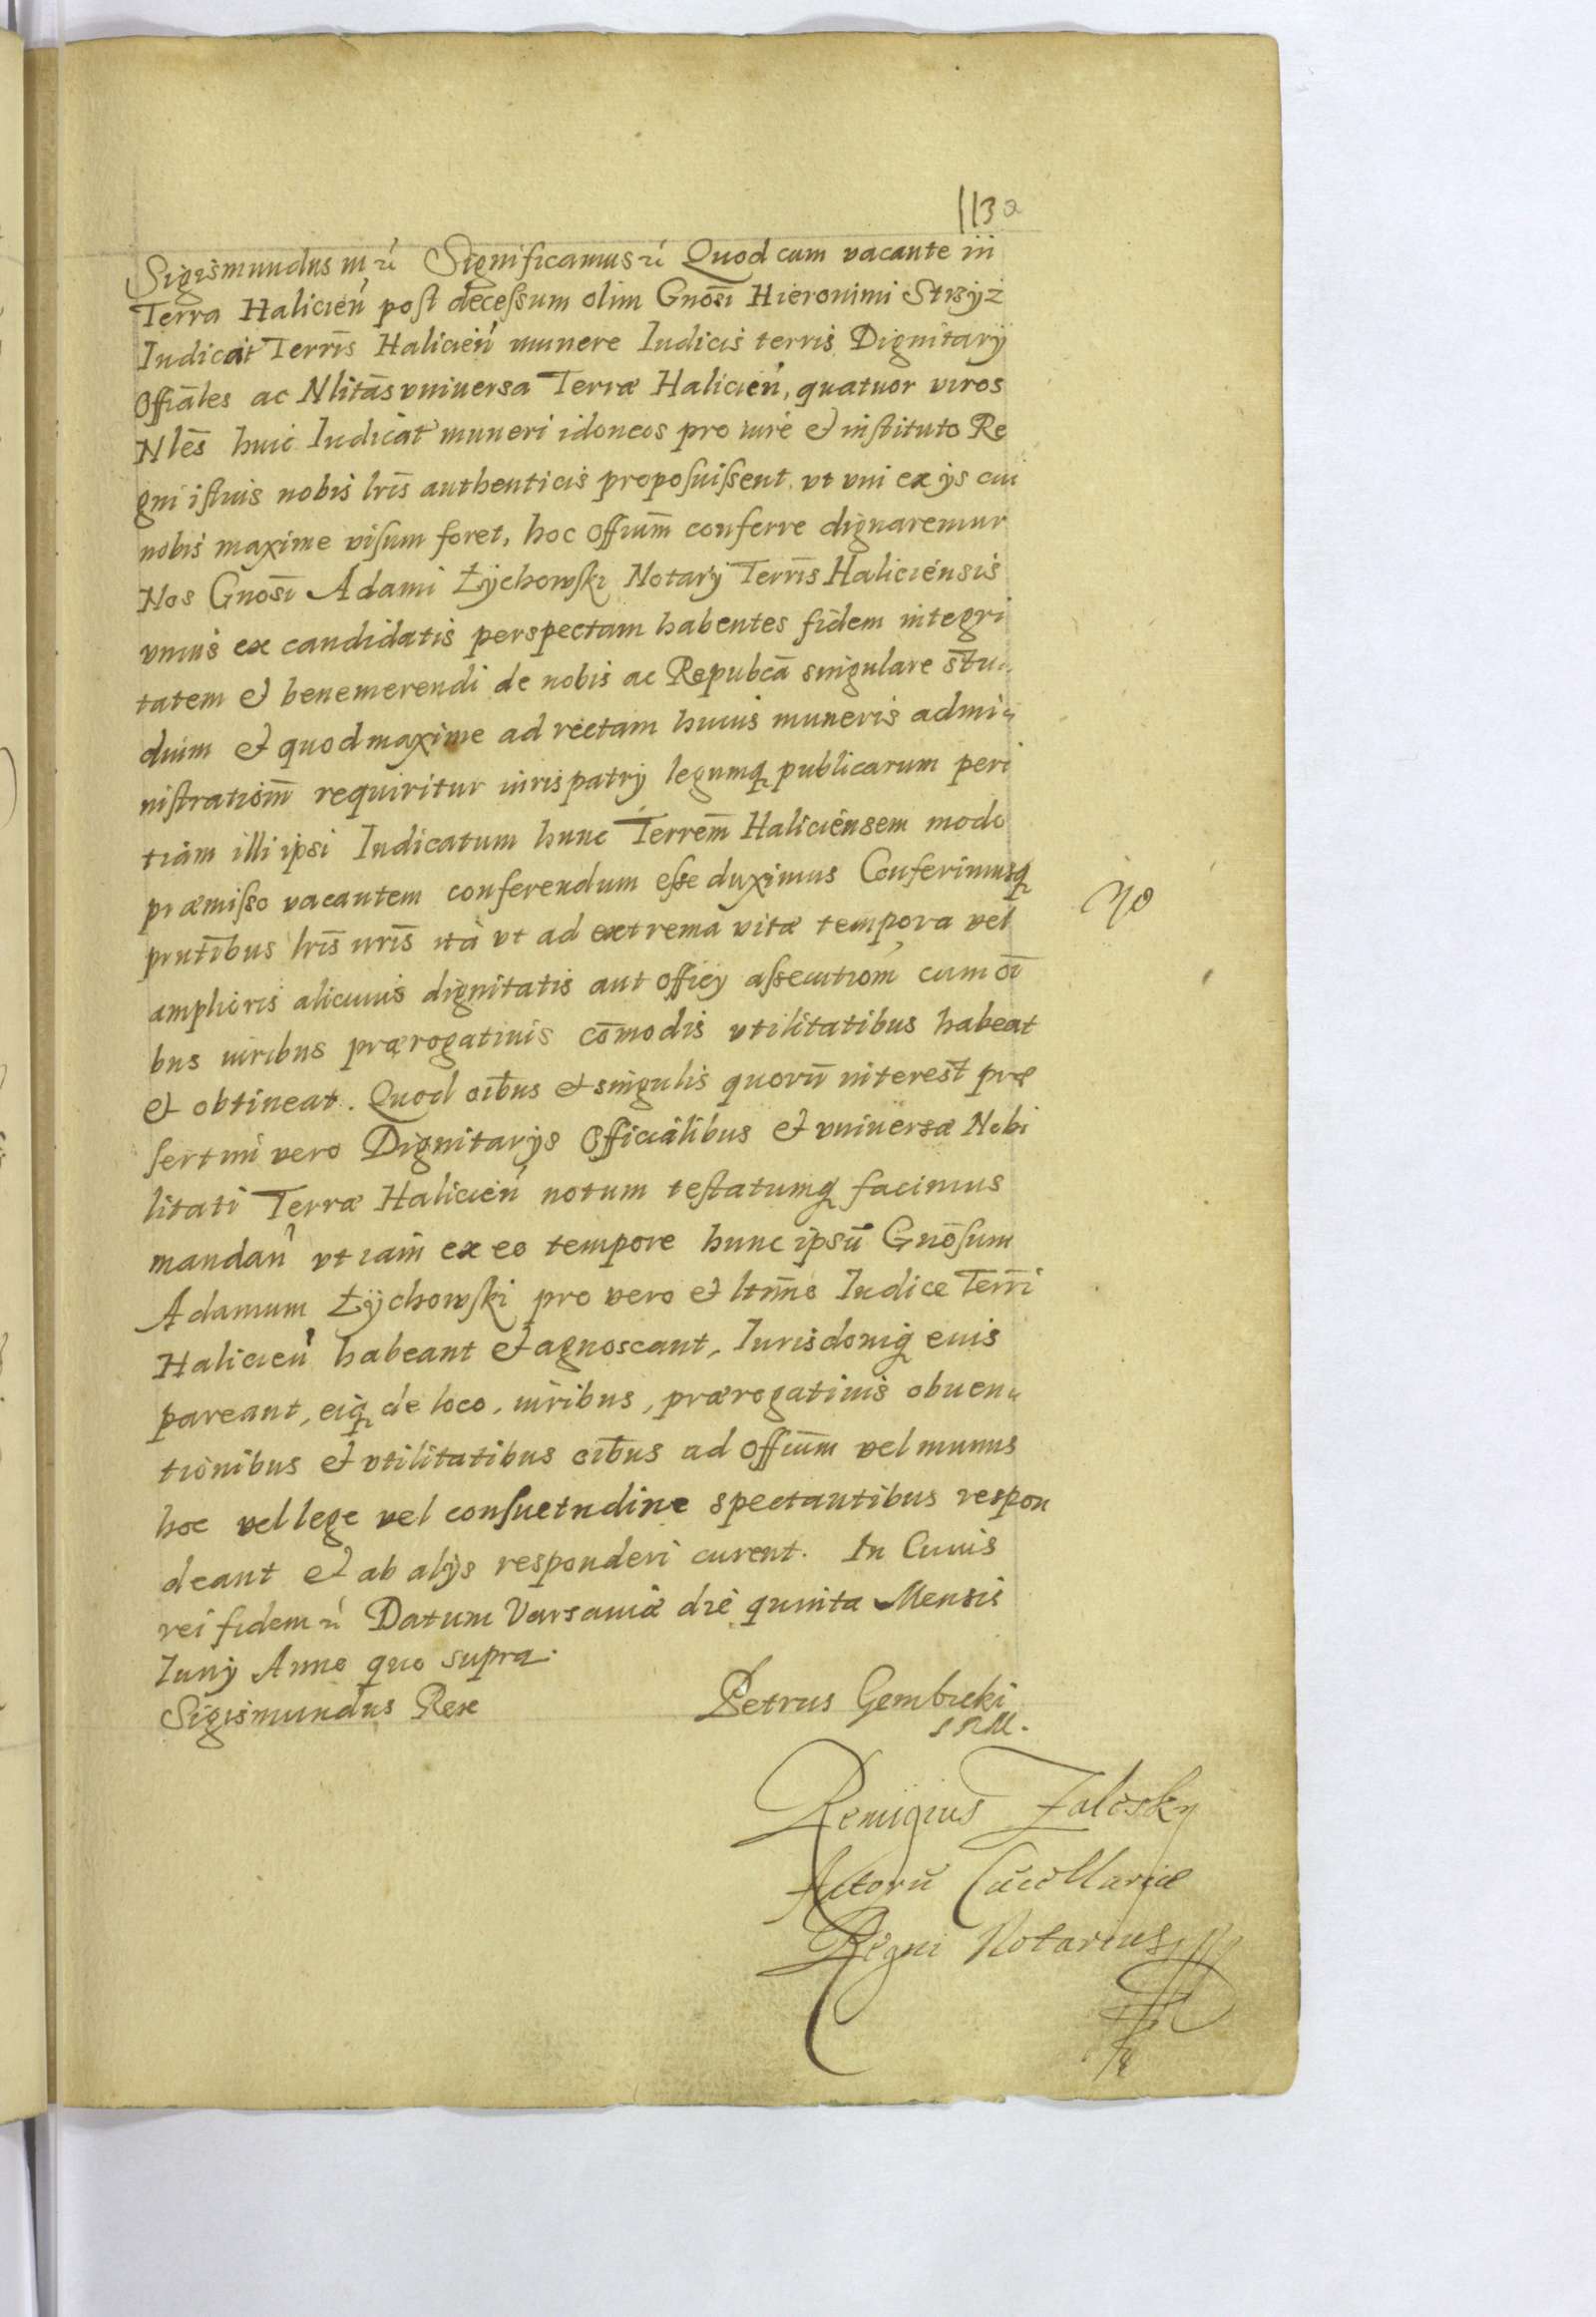 113a
Sigismundus III etc Significamus etc Quod cum vacante in
Terra Halicień post decessum olim Gnosi Hieronimi Strzyż
Iudicat Terris Halicień munere Iudicis terris Dignitarÿ
Offiāles ac Nlitās vniuersa Terræ Halicień, quatuor viros
Nlēs huic Iudicat muneri idoneos pro iure et instituto Re
gni istius nobis lris authenticis proposuissent, vt vni ex ÿs cui
nobis maxime visum foret, hoc offium conferre dignaremur
Nos Gnosi Adami Łÿchowski Notarÿ Terris Haliciensis
vnius ex candidatis perspectam habentes fidem integri
tatem et benemerendi de nobis ac Repubcā singulare stu
dium et quod maxime ad rectam huius muneris admi
nistrationm requiritur iuris patrÿ legumq publicarum peri
tiam illi ipsi Iudicatum hunc Terrem Haliciensem modo
præmisso vacantem conferendum esse duximus Conferimusq
pntibus lris nris ita vt ad extrema vitæ tempora vel
amplioris alicuius dignitatis aut officÿ assecutiom cum oi
bus iuribus prærogatiuis cōmodis vtilitatibus habeat
et obtineat. Quod oibus et singulis quorū interest præ
sertim vero Dignitarÿs Officialibus et vniuersæ Nobi
litati Terræ Halicień notum testatumq facimus
mandań vt iam ex eo tempore hunc ipsū Gnōsum
Adamum Łÿchowski pro vero et ltimo Iudice Terri
Halicień habeant et agnoscant, Iurisdoniq eius
pareant, eiq de loco, iuribus, prærogatiuis obuen
tionibus et vtilitatibus oibus ad offium vel munus
hoc vel lege vel consuetudine spectantibus respon
deant et ab alÿs responderi curent. In Cuius
rei fidem etc Datum Varsauiæ die quinta Mensis
Iunÿ Anno quo supra.
Sigismundus Rex Petrus Gembicki
SRM.
Remigius Zalesky
Actorū Cācellariæ
Regni Notarius